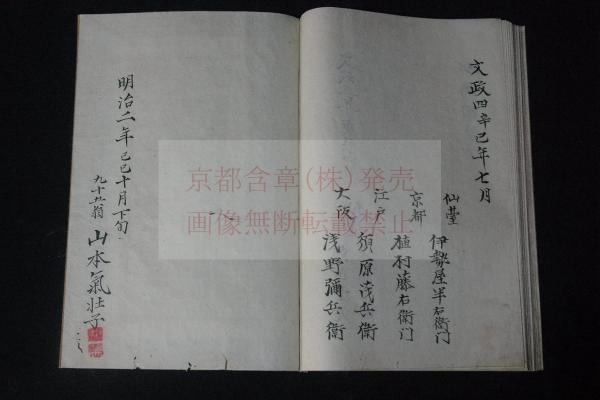 文政四辛巳年七月
仙臺
伊勢屋半右衛门
京都
植村藤右衛门
江戸
須原茂兵衛
大阪
浅野彌兵衛
明治二年己巳十月下旬
山本氣壮子
京都含章(株)発売
画像無断転載禁止